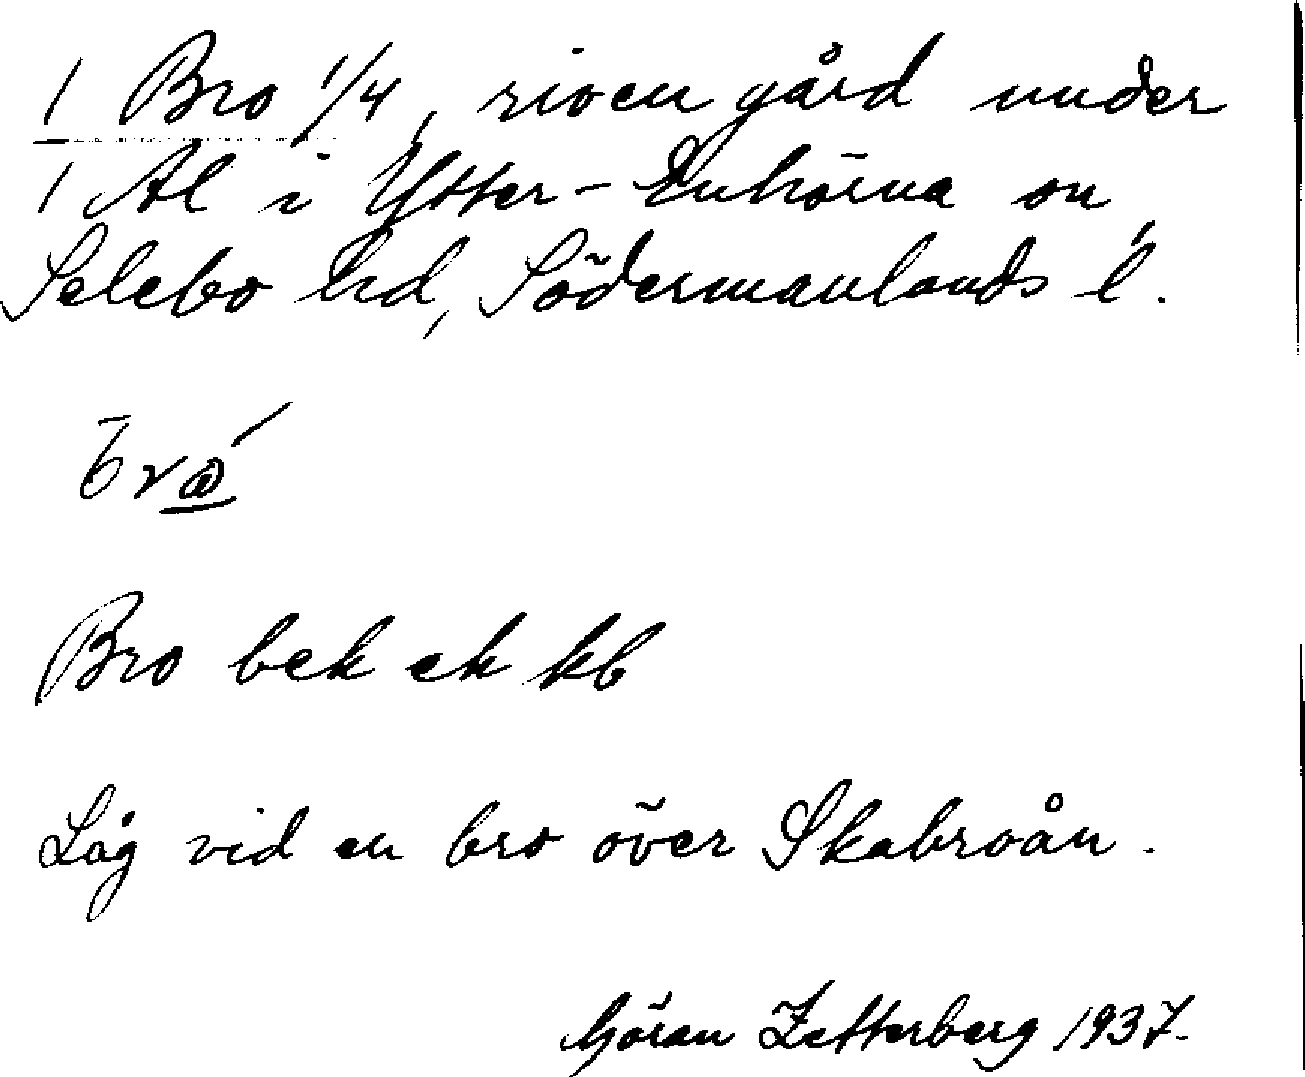 1 Bro 1/4, riven gård under
1 Al i Ytter-Enhörna sn
Selebo hd, Södermanlands l.
Bro bek ek kb
Låg vid en bro över Skabroån.
Göran Zetterberg 1937.